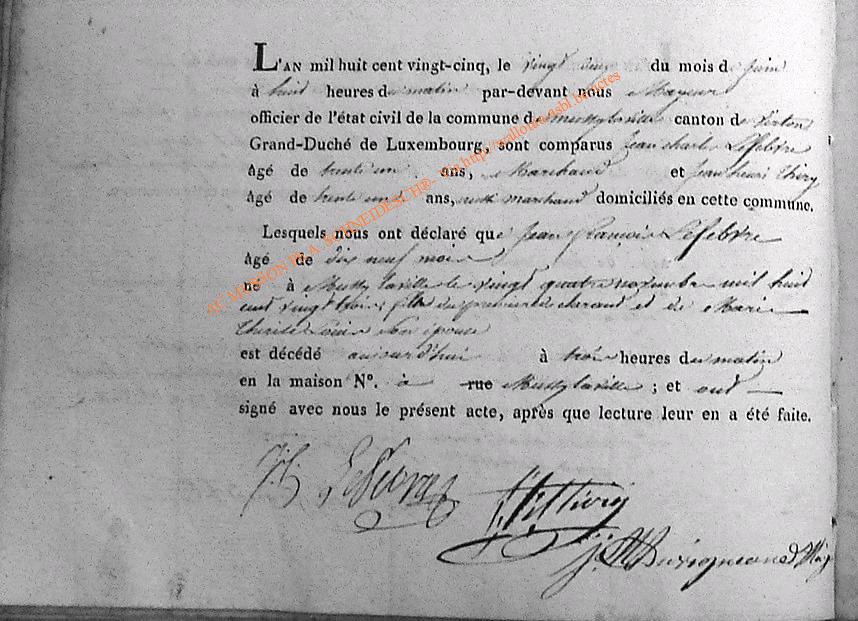 L'AN mil huit cent vingt-cinq, le vingt cinq du mois de juin
à huit heures du matin par-devant nous Mayeur
officier de l'état civil de la commune de mussylaville canton de virton
Grand-Duché de Luxembourg, sont comparus Jean charles Lefebvre
âgé de trente un ans, Marchand et Jean henri thiry
âgé de trente ans, marchand domiciliés en cette commune.
Lesquels nous ont déclaré que Jean françois Lefebvre
âgé de dix neuf mois
né à Mussy laville le vingt quatre novembre mil huit
cent vingt trois fils du premier déclarant et de Marie
Thérèse Louis son épouse
est décédé aujourd'hui à trois heures du matin
en la maison N°. à rue Mussylaville ; et ont
signé avec nous le présent acte, après que lecture leur en a été faite.
Lefebvre
thiry